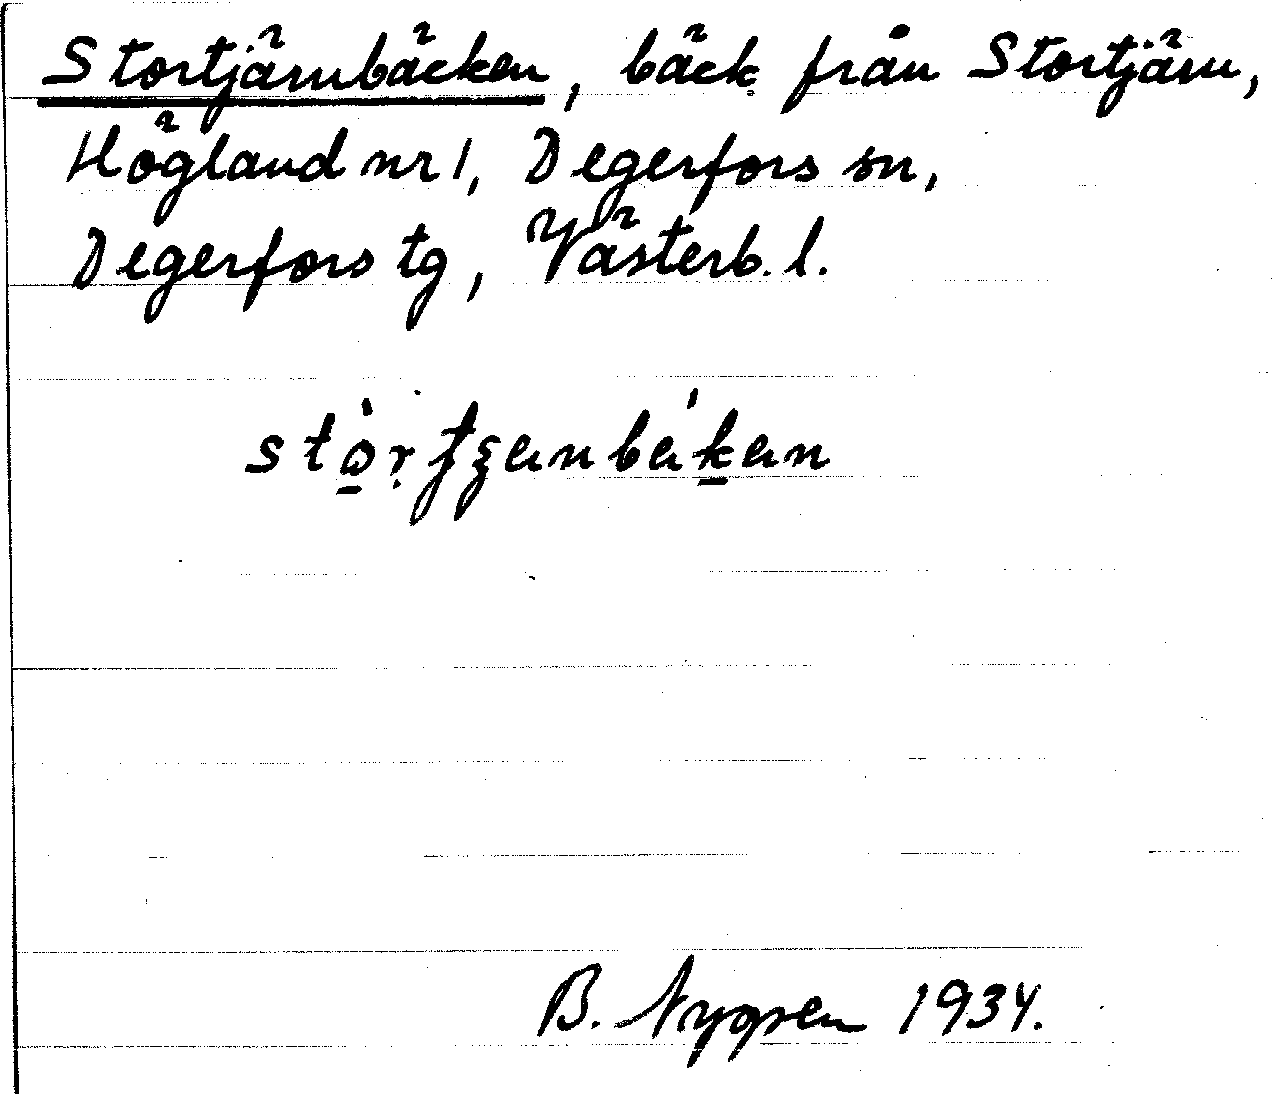 Stortjärnbäcken, bäck från Stortjärn,
Högland nr 1, Degerfors sn,
Degerfors tg, Västerb. l.
B. Nygren 1934.